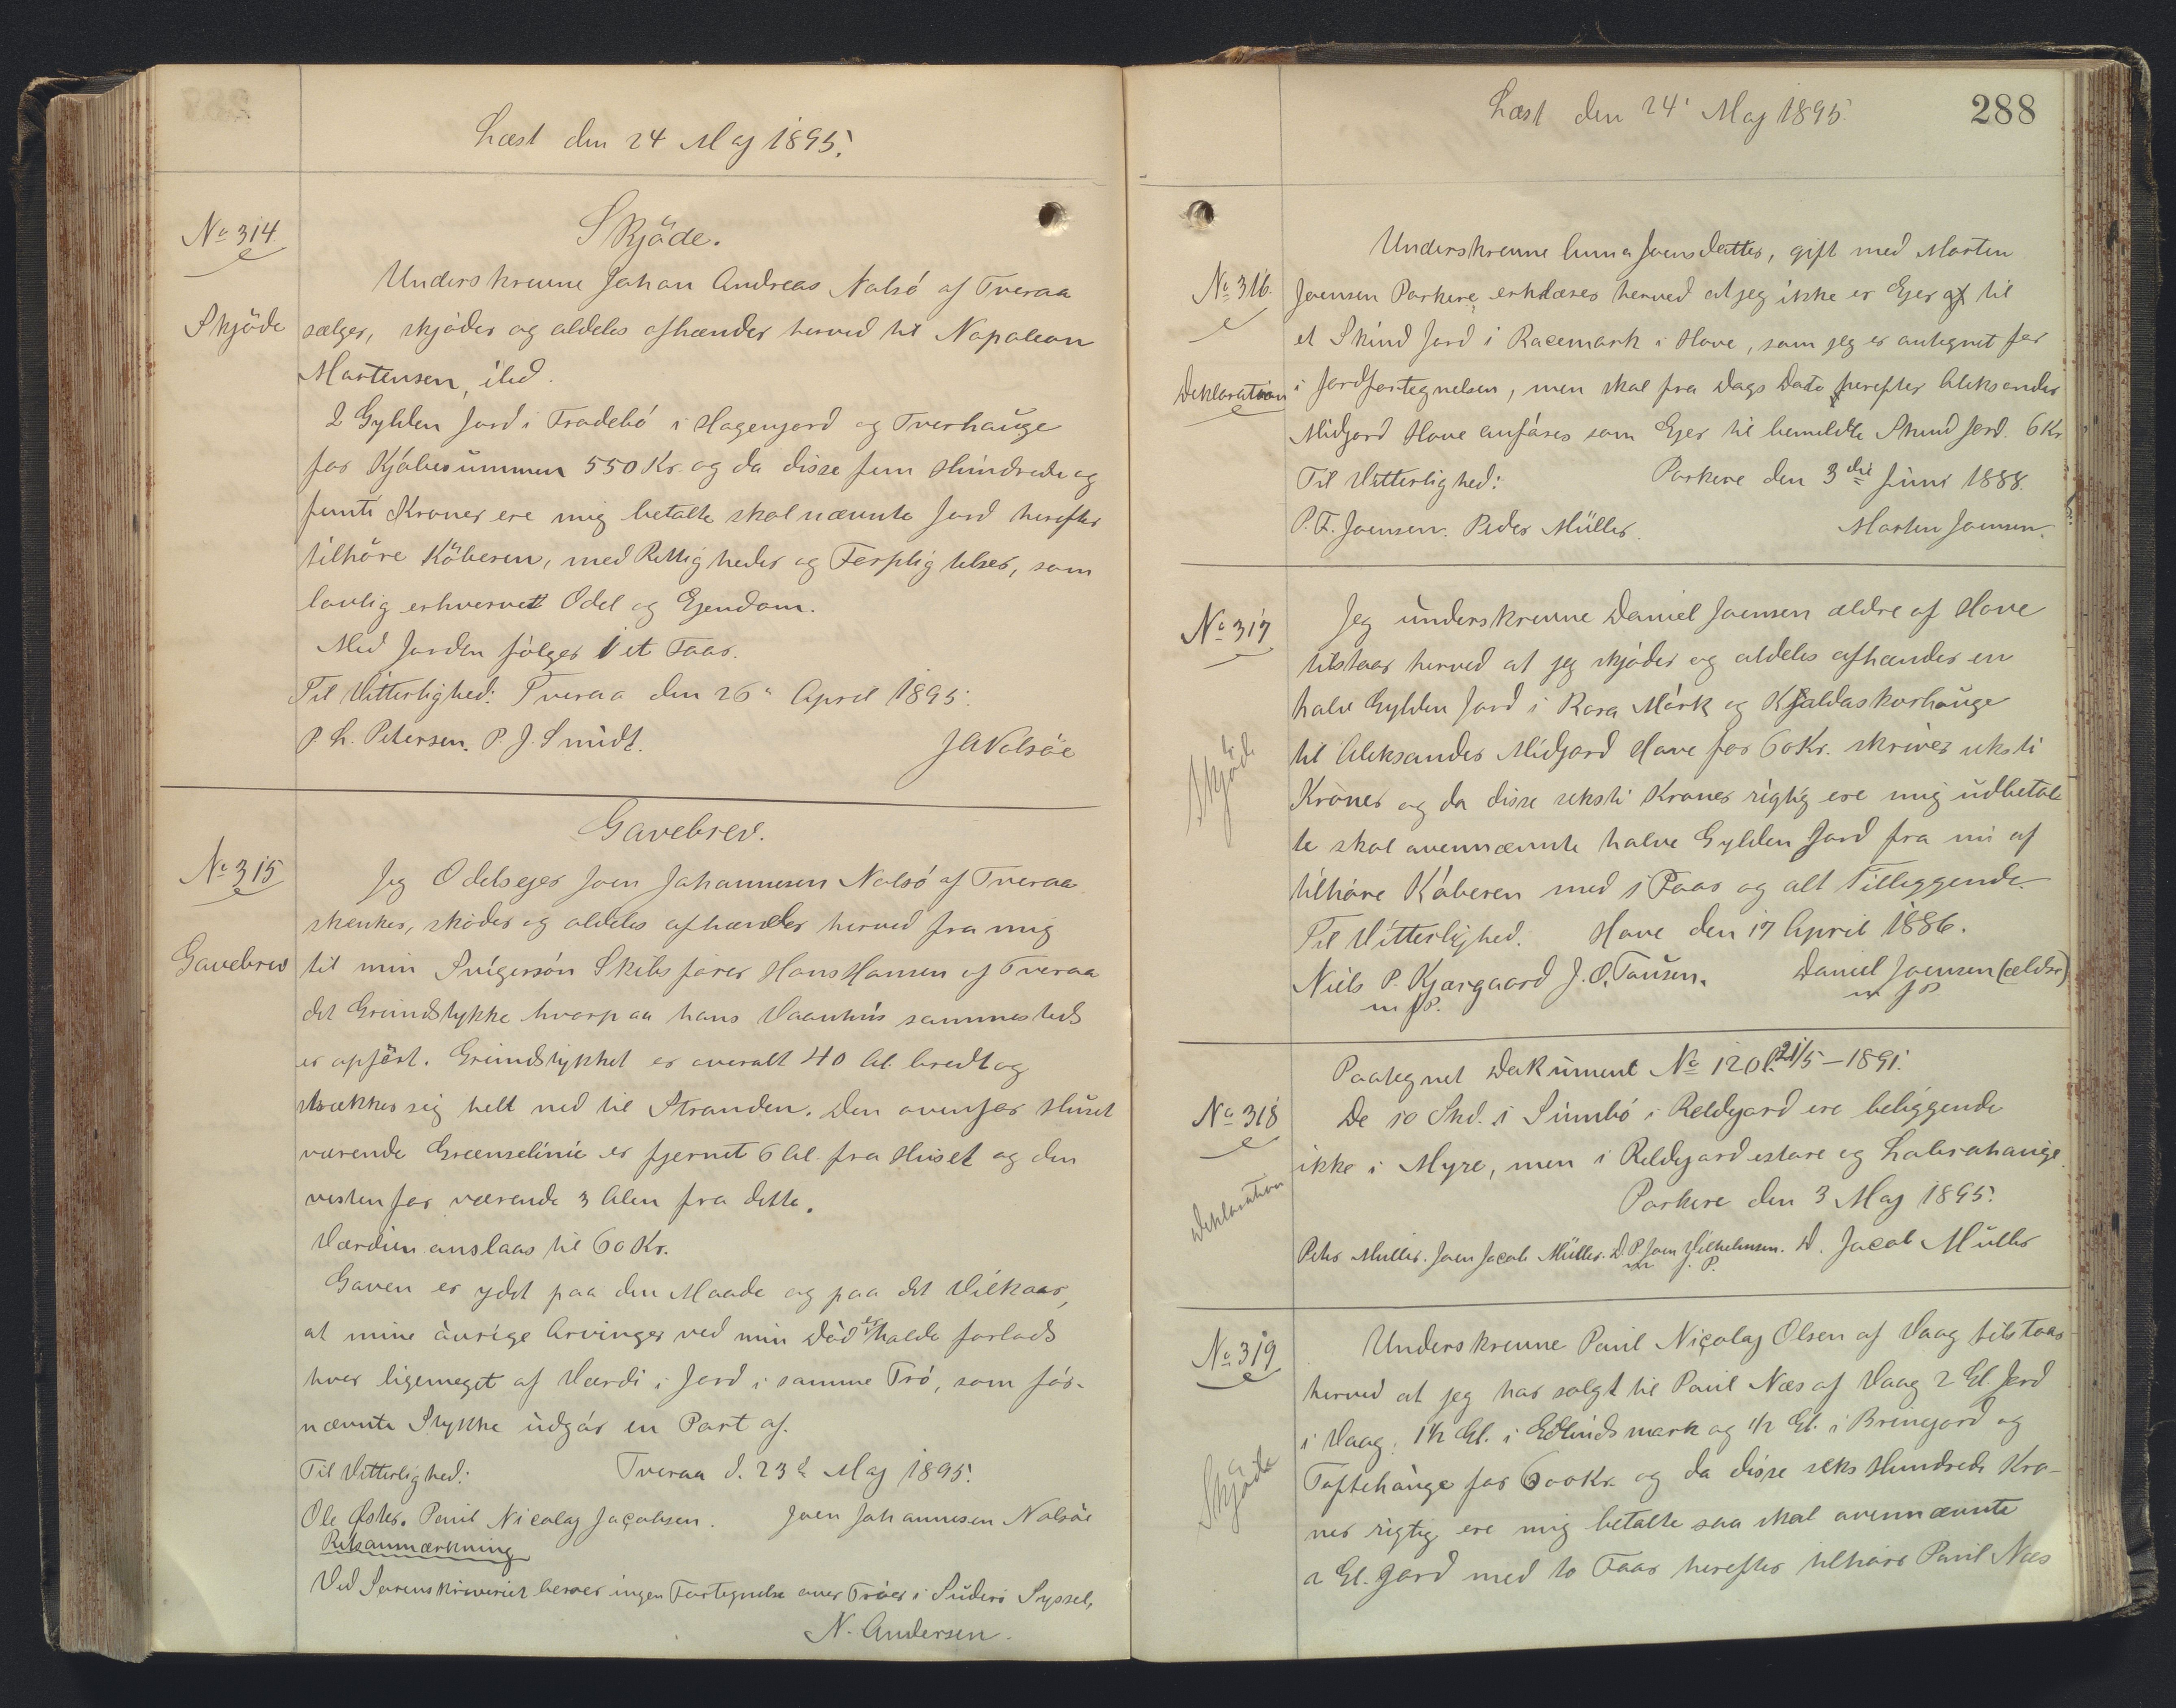 Læst den 24 Maj 1895.
No 314
Skjöde
Skjöde.
Underskrevne Johan Andreas Nolsö af Tveraa
sælger, skjöder og aldeles afhænder herved til Napoleon
Mortensen, ibd.
2 Gylden Jord i Frodebö i Hagenjord og Tverhauge
for Kjöbesummen 550 Kr. og da disse fem Hundrede og
femti Kroner ere mig betalte skal nævnte Jord herefter
tilhöre Köberen, med Rettigheder og Forpligtelser, som
lovlig erhvervet Odel og Ejendom.
Med Jorden fölger 1 et Faar.
Til Vitterlighed: Tveraa den 26" April 1895.
P. L. Petersen. P. J. Smidt. JANolsöe
No 315
Gavebrev
Gavebrev.
Jeg Odelsejer Joen Johannesen Nolsö af Tveraa
skenker, sköder og aldeles afhænder herved fra mig
til min Svigersön Skibsförer Hans Hansen af Tveraa
det Grundstykke hvorpaa hans Vaanhus sammesteds
er opfört. Grundstykket er overalt 40 Al. bredt og
strækker sig helt ned til Stranden. Den ovenfor Huset
værende Grænselinie er fjernet 6 Al. fra Huset og den
vestenfor værende 3 Alen fra dette.
Værdien anslaas til 60 Kr.
Gaven er ydet paa den Maade og paa det Vilkaar,
at mine övrige Arvinger ved min Död beholde forlods
hver ligemeget af Værdi i Jord i samme Trö, som för-
nævnte Stykke udgör en Part af.
Til Vitterlighed: Tveraa d. 23d Maj 1895.
Ole Öster. Poul Nicolaj Jacobsen. Joen Johannesen Nolsöe
Retsanmærkning
Ved Sorenskriveriet beroer ingen Fortegnelse over Tröer i Suderö Syssel,
N. Andersen.
Læst den 24' Maj 1895.
288
No 316.
Deklaration
Underskrevne Anna Joensdatter, gift med Morten
Joensen Porkere, erklærer herved at jeg ikke er Ejer af til
et Skind Jord i Racemark i Hove, som jeg er antegnet for
i Jordfortegnelsen, men skal fra Dags Dato herefter Aleksander
Midjord Hove anföres som Ejer til bemeldte Skind Jord. 6 Kr
Til Vitterlighed: Porkere den 3die Juni 1888.
P. F. Joensen. Peder Müller. Morten Joensen.
No 317
Skjöde
Jeg underskrevne Daniel Joensen ældre af Hove
tilstaar herved at jeg skjöder og aldeles afhænder en
halv Gylden Jord i Rara Mörk og Kjaldaskorhauge
til Aleksander Midjord Hove for 60 Kr. skriver seksti
Kroner og da disse seksti Kroner rigtig ere mig udbetal
te skal ovennævnte halve Gylden Jord fra nu af
tilhöre Köberen med 1 Faar og alt Tilliggende.
Til Vitterlighed. Hove den 17 April 1886.
Niels P. Kjærgaard J. O. Tausen. Daniel Joensen (ældre)
m f P. m f P
No 318
Deklaration
Paategnet Dokument No 120 l. 21/5-1891.
De 10 Skd. i Sumbö i Reldegard ere beliggende
ikke i Myre, men i Reldegardestore og Labrahauge.
Porkere den 3 Maj 1895.
Peter Müller. Joen Jacob Müller. D. P. Joen Vilhelmsen. D. Jacob Müller
m f. P.
No 319
Skjöde
Underskrevne Poul Niçolaj Olsen af Vaag tilstaar
herved at jeg har solgt til Poul Næs af Vaag 2 Gl. Jord
i Vaag. 1 1/2 Gl. i Edlindsmark og 1/2 Gl. i Brinejord og
Toftehauge for 600 Kr. og da disse seks Hundrede Kro-
ner rigtig ere mig betalte saa skal ovennævnte
2 Gl. Jord med to Faar herefter tilhöre Poul Næs